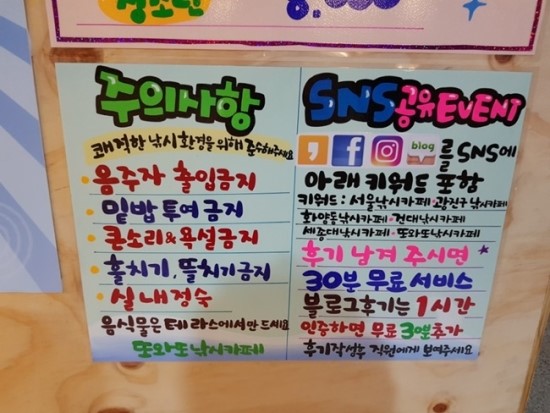 청소년
주의사항
쾌적한 낚시환경을 위해 준수해주세요
음주자 출입금지
밑밥 투여 금지
큰소리&욕설금지
훌치기, 뜰치기금지
실내정숙
음식물은 테라스에서만 드세요
또와또 낚시카페
SNS공유EVENT
blog 를 SNS에
아래 키워드 포함
키워드 : 서울낚시카페·광진구 낚시카페
화양동낚시카페·건대낚시카페
세종대낚시카페·또와또낚시카페
후기 남겨 주시면
30분 무료 서비스
블로그후기는 1시간
인증하면 무료 3분추가
후기작성후 직원에게 보여주세요